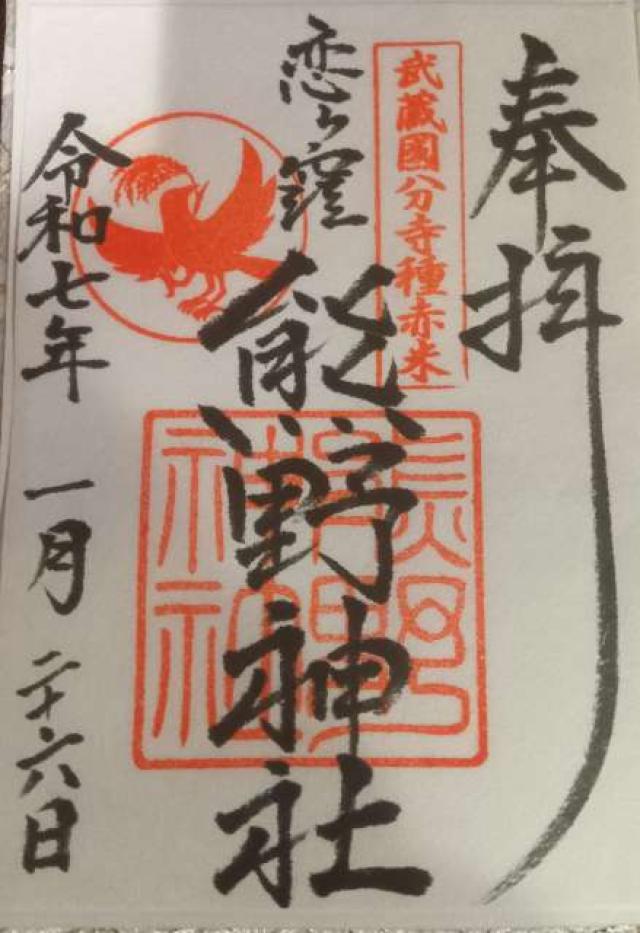 奉拝
武蔵國八分寺種赤米
恋ヶ窪
熊野神社
熊野
神社
令和七年 一月 二十六日